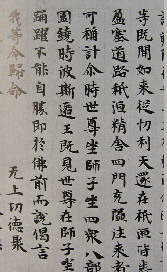 等既聞如來從忉利天還在祇洹皆生
盈塞道路祇洹精舍四門充隘注來
可稱計尒時世尊坐師子坐四衆八部
圍繞時波斯匿王既見世尊在師子坐
踊躍不能自勝即於佛前而說偈言
我等今歸命 无上功德聚